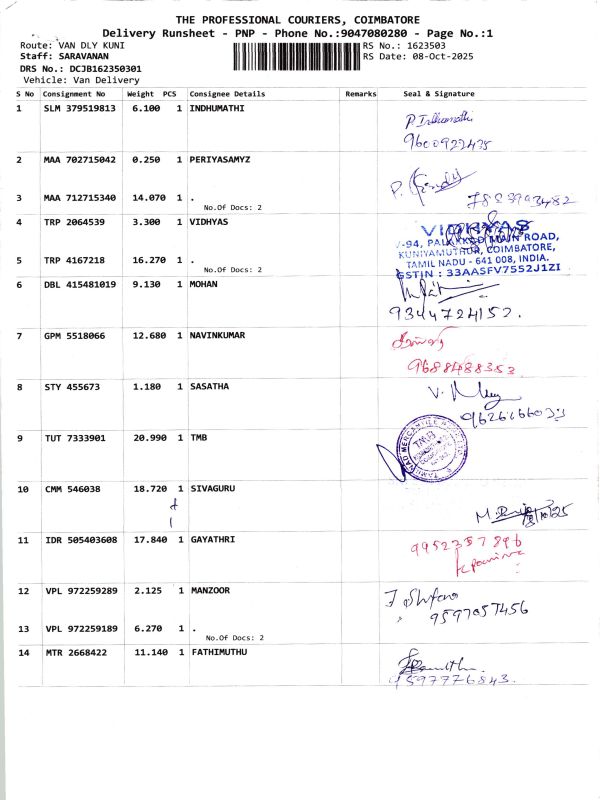 THE PROFESSIONAL COURIERS, COIMBATORE
Delivery Runsheet - PNP - Phone No.:9047080280 - Page No.:1
Route: VAN DLY KUNI RS No.: 1623503
Staff: SARAVANAN RS Date: 08-Oct-2025
DRS No.: DCJB162350301
Vehicle: Van Delivery
S No Consignment No Weight PCS Consignee Details Remarks Seal & Signature
1 SLM 379519813 6.100 1 INDHUMATHI
P. Indhumathi
9600922435
2 MAA 702715042 0.250 1 PERIYASAMYZ
3 MAA 712715340 14.070 1 .
7883993482
No.Of Docs: 2
4 TRP 2064539 3.300 1 VIDHYAS
VIDHYAS
V-94, PALAKKAD MAIN ROAD,
KUNIYAMUTHUR, COIMBATORE,
5 TRP 4167218 16.270 1 .
TAMIL NADU - 641 008, INDIA.
No.Of Docs: 2
GSTIN : 33AASFV7552J1ZI
6 DBL 415481019 9.130 1 MOHAN
9344724152.
7 GPM 5518066 12.680 1 NAVINKUMAR
9688488353
8 STY 455673 1.180 1 SASATHA
9 TUT 7333901 20.990 1 TMB
TMB
10 CMM 546038 18.720 1 SIVAGURU
11 IDR 505403608 17.840 1 GAYATHRI
9952357896
12 VPL 972259289 2.125 1 MANZOOR
9597057456
13 VPL 972259189 6.270 1 .
No.Of Docs: 2
14 MTR 2668422 11.140 1 FATHIMUTHU
9597776843.